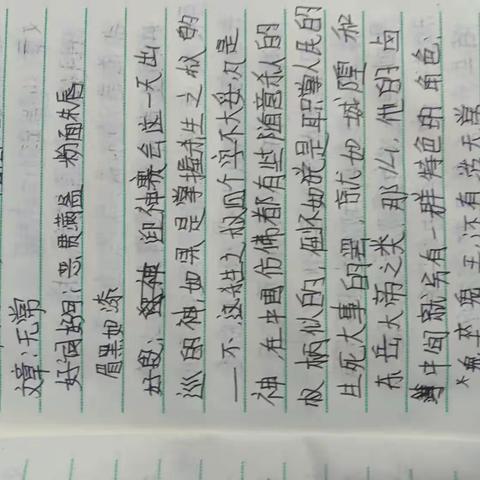 文章:无常
好词好句:恶贯满盈 粉面朱唇
眉黑如漆
好段: 迎神赛会这一天出
巡的神,如果是掌握杀生之权的
一不,这杀生之权四个字不大妥凡是
神 在中国仿佛都有些随意杀人的
权柄似的,倒不如说是职掌人民的
生死大事的罢 就如城隍和
东岳大帝之类 那么,他的卤
中间就另有一群特色的角色:
*鬼卒 鬼王 还有活无常